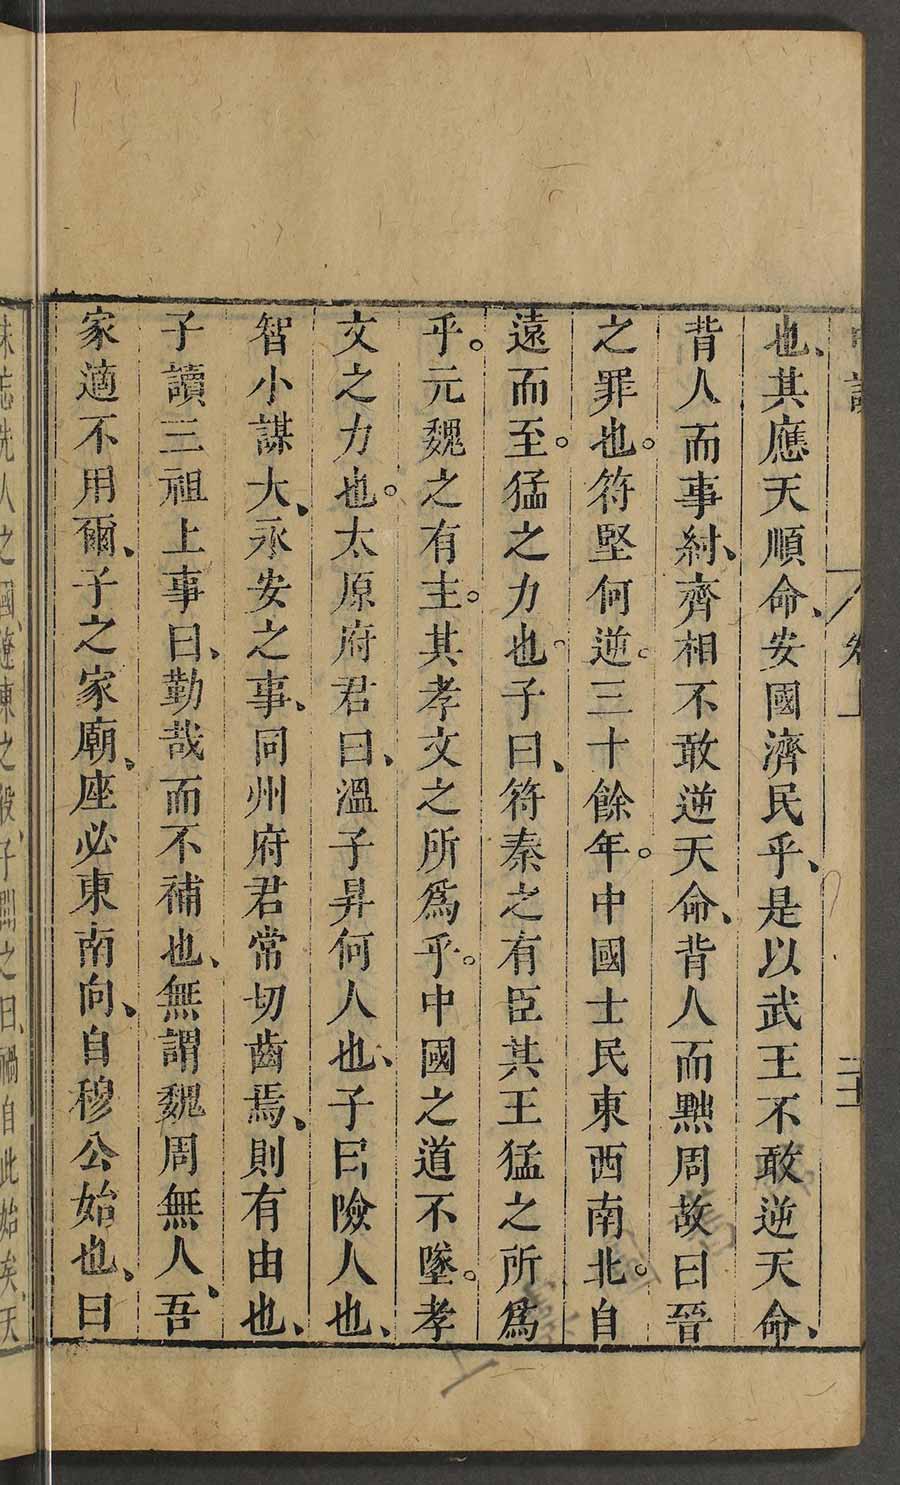 也、其應天順命、安國濟民乎、是以武王不敢逆天命、
背人而事紂、齊相不敢逆天命、背人而黜周故曰晉
之罪也。符堅何逆。三十餘年。中國士民東西南北。自
遠而至。猛之力也。子曰、符秦之有臣其王猛之所爲
乎。元魏之有主。其孝文之所爲乎。中國之道不墜。孝
文之力也。太原府君曰、溫子昇何人也、子曰險人也、
智小謀大、永安之事、同州府君常切齒焉、則有由也、
子讀三祖上事曰、勤哉而不補也、無謂魏周無人、吾
家適不用爾、子之家廟、座必東南向、自穆公始也、曰